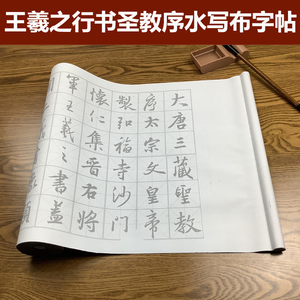 王羲之行书圣教序水写布字帖
大唐三藏聖教
序太宗文皇帝
製弘福寺沙門
懷仁集晉右將
軍王羲之書蓋